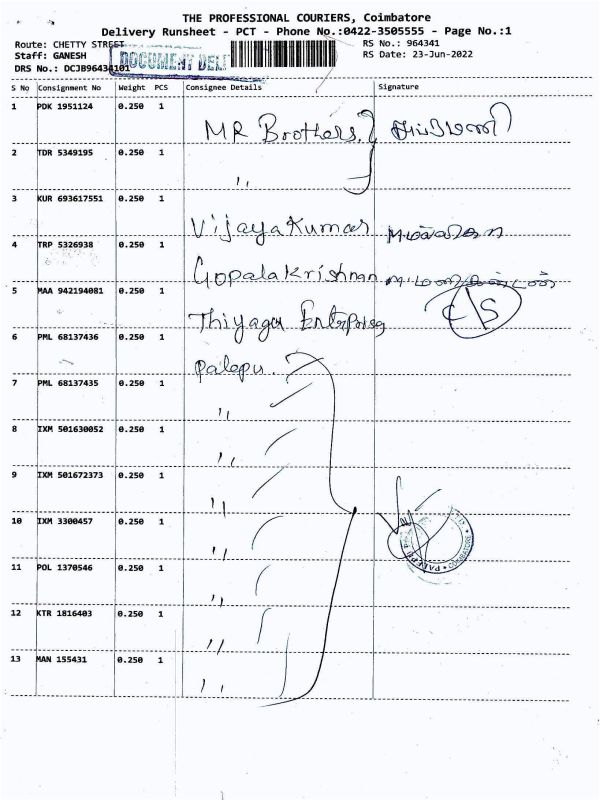 THE PROFESSIONAL COURIERS, Coimbatore
Delivery Runsheet - PCT - Phone No.:0422-3505555 - Page No.:1
Route: CHETTY STREET
RS No.: 964341
Staff: GANESH
RS Date: 23-Jun-2022
DRS No.: DCJB96434101
DOCUMENT DELI
S No Consignment No Weight PCS Consignee Details Signature
1 PDK 1951124 0.250 1 MR Brothers.
2 TDR 5349195 0.250 1 ,,
3 KUR 693617551 0.250 1 Vijayakumar
4 TRP 5326938 0.250 1 Gopalakrishnan
5 MAA 942194081 0.250 1 Thiyagu C/S
6 PML 68137436 0.250 1 Palepu.
7 PML 68137435 0.250 1 ,,
8 IXM 501630052 0.250 1 ,,
9 IXM 501672373 0.250 1 ,,
10 IXM 3300457 0.250 1 ,,
11 POL 1370546 0.250 1 ,,
12 KTR 1816403 0.250 1 ,,
13 MAN 155431 0.250 1 ,,
COIMBATORE